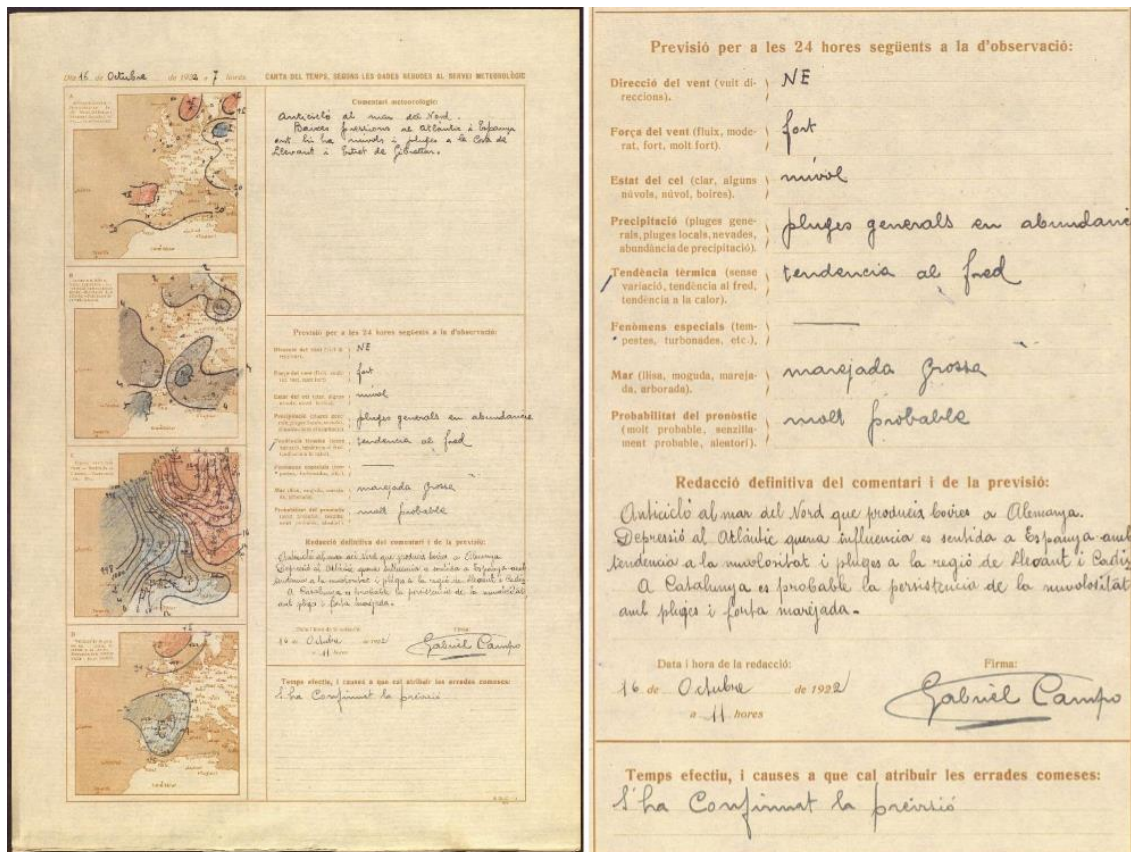 Dia 16 de Octubre de 1922 a 7 hores
CARTA DEL TEMPS, SEGONS LES DADES REBUDES AL SERVEI METEOROLÒGIC
Comentari meteorològic:
Anticicló al mar del Nord.
Baixes pressions al Atlàntic i Espanya
ont hi ha núvols i pluges a la Costa de
Llevant i Estret de Gibraltar.
Previsió per a les 24 hores següents a la d'observació:
NE
fort
núvol
pluges generals en abundancia
tendencia al fred
marejada grossa
molt probable
Redacció definitiva del comentari i de la previsió:
Anticicló al mar del Nord que produeix boires a Alemanya.
Depressió al Atlàntic quena influencia es sentida a Espanya amb
tendencia a la nuvolositat i pluges a la regió de Llevant i Cadiz
A Catalunya es probable la persistencia de la nuvolositat
amb pluges i forta marejada.
Data i hora de la redacció:
Firma:
16 de Octubre de 1922
a 11 hores
Gabriel Campo
Temps efectiu, i causes a que cal atribuir les errades comeses:
S'ha Confirmat la previsió
Previsió per a les 24 hores següents a la d'observació:
Direcció del vent (vuit di-
reccions).
NE
Força del vent (fluix, mode-
rat, fort, molt fort).
fort
Estat del cel (clar, alguns
núvols, núvol, boires).
núvol
Precipitació (pluges gene-
rals, pluges locals, nevades,
abundància de precipitació).
pluges generals en abundanc
Tendència tèrmica (sense
variació, tendència al fred,
tendència a la calor).
tendencia al fred
Fenòmens especials (tem-
pestes, turbonades, etc.).
Mar (llisa, moguda, mareja-
da, arborada).
marejada grossa
Probabilitat del pronòstic
(molt probable, senzilla-
ment probable, aleatori).
molt probable
Redacció definitiva del comentari i de la previsió:
Anticicló al mar del Nord que produeix boires a Alemanya.
Depressió al Atlàntic quena influencia es sentida a Espanya amb
tendencia a la nuvolositat i pluges a la regió de Llevant i Cadiz
A Catalunya es probable la persistencia de la nuvolositat
amb pluges i forta marejada.
Data i hora de la redacció:
Firma:
16 de Octubre de 1922
a 11 hores
Gabriel Campo
Temps efectiu, i causes a que cal atribuir les errades comeses:
S'ha Confirmat la previsió